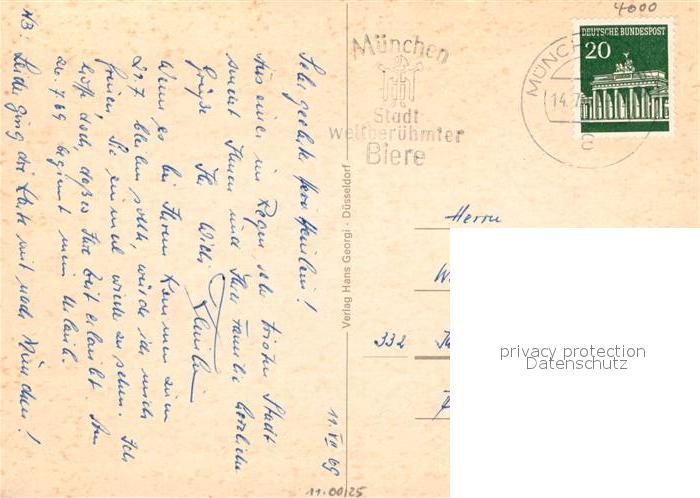 4000
DEUTSCHE BUNDESPOST
20
MÜNCH
14.7
8
München
Stadt
weltberühmter
Biere
Sehr geehrter Herr
Aus einer im Regen sehr tristen Stadt
sendet Ihnen und Ihrer Familie herzliche
Grüße Ihr Willi
Wenn es bei Ihrem Kommen zum
29.7 bleiben sollte, würde ich mich
freuen, Sie einmal wieder zu sehen. Ich
hoffe doch, daß es Ihre Zeit erlaubt. Am
26.7.69 beginnt mein Urlaub.
NB: Leider ging die Karte mit nach München!
11. VII 69
Verlag Hans Georgi · Düsseldorf
Herrn
W
332
11.00/25
privacy protection
Datenschutz